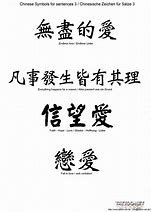 Chinese Symbols for sentences 3 / Chinesische Zeichen für Sätze 3
無盡的愛
Endless love / Endlose Liebe
凡事發生皆有其理
Everything happens for a reason / Alles passiert aus ein Grund
信望愛
Faith - Hope - Love / Glaube - Hoffnung - Liebe
戀愛
Fall in love / sich verlieben